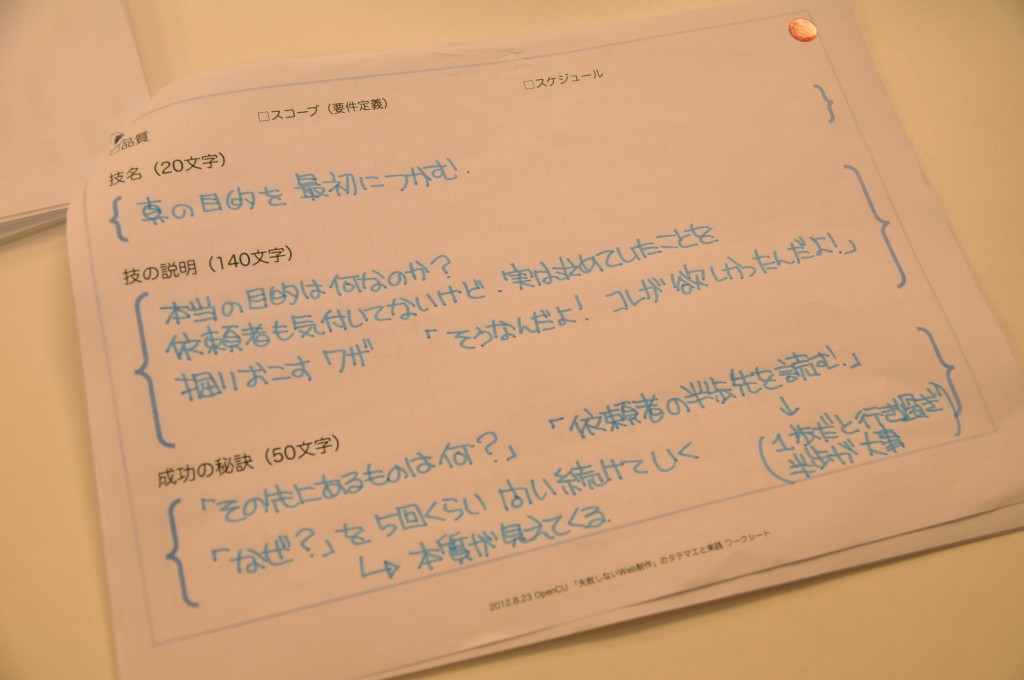 品質 □スコープ（要件定義） □スケジュール
技名（20文字）
真の目的を 最初につかむ!
技の説明（140文字）
本当の目的は何なのか？
依頼者も気付いてないけど、実は求めていたことを
掘りおこす ワザ 「そうなんだよ! コレが欲しかったんだよ!」
成功の秘訣（50文字）
「その先にあるものは何？」 「依頼者の半歩先を読む!」
↓
「なぜ？」を5回くらい問い続けていく
(1歩だと行き過ぎ
半歩が大事)
↳ 本質が見えてくる
2012.8.23 OpenCU 「失敗しないWeb制作」のタテマエと実践 ワークシート